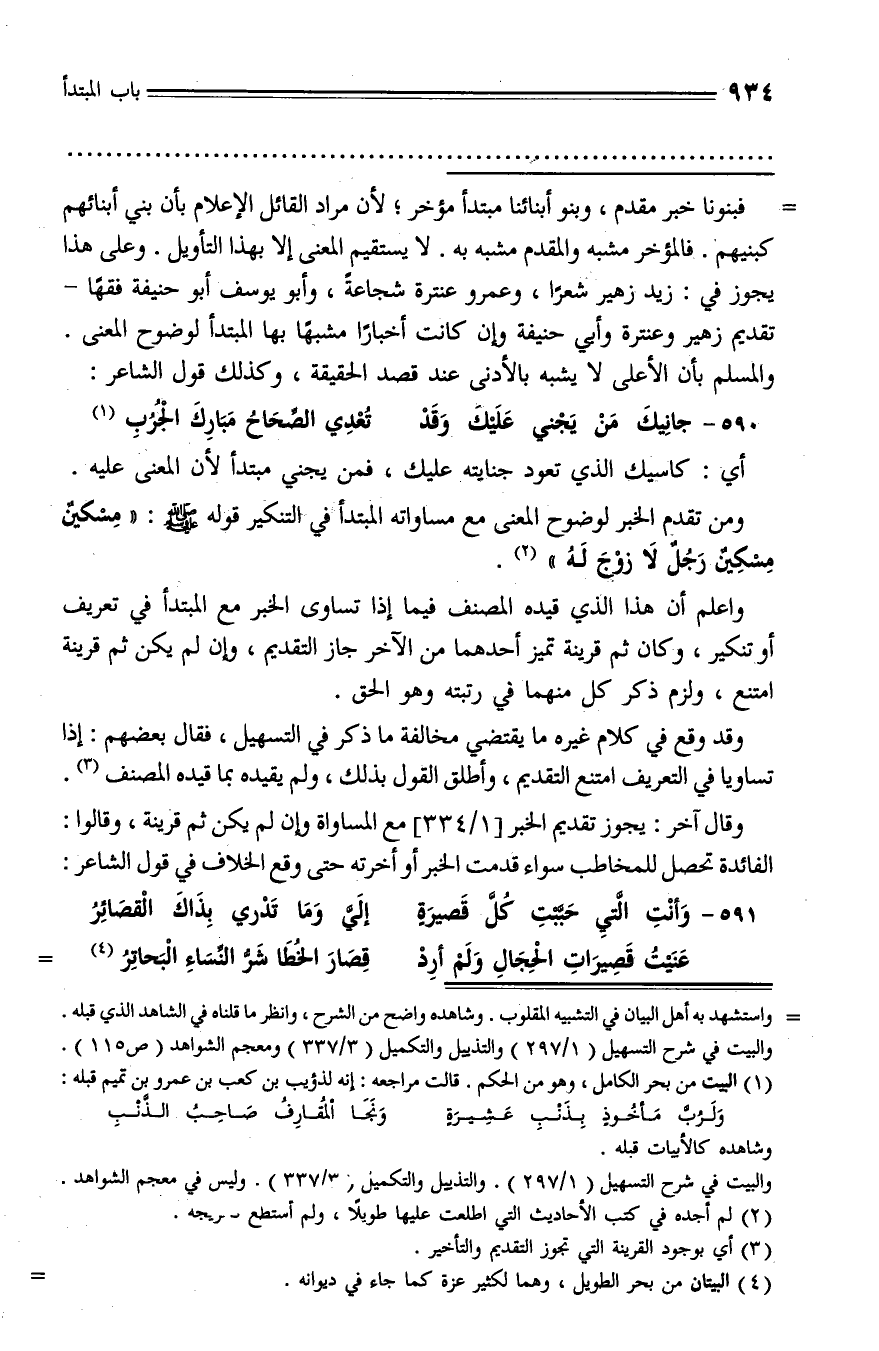 ٩٣٤ باب المبتدأ
= فبنونا خبر مقدم ، وبنو أبنائنا مبتدأ مؤخر ؛ لأن مراد القائل الإعلام بأن بني أبنائهم
كبنيهم . فالمؤخر مشبه والمقدم مشبه به . لا يستقيم المعنى إلا بهذا التأويل . وعلى هذا
يجوز في : زيد زهير شعرًا ، وعمرو عنترة شجاعةً ، وأبو يوسف أبو حنيفة فقهًا –
تقديم زهير وعنترة وأبي حنيفة وإن كانت أخبارًا مشبهًا بها المبتدأ لوضوح المعنى .
والمسلم بأن الأعلى لا يشبه بالأدنى عند قصد الحقيقة ، وكذلك قول الشاعر :
٥٩٠- جانِيكَ مَنْ يَجْني عَلَيْكَ وَقَدْ تُعْدِي الصِّحَاحُ مَبَارِكَ الْجُرُبِ (١)
أي : كاسيك الذي تعود جنايته عليك ، فمن يجني مبتدأ لأن المعنى عليه .
ومن تقدم الخبر لوضوح المعنى مع مساواته المبتدأ في التنكير قوله ﷺ : « مِسْكينٌ
مِسْكِينٌ رَجُلٌ لَا زوْجَ لَـهُ » (٢) .
واعلم أن هذا الذي قيده المصنف فيما إذا تساوى الخبر مع المبتدأ في تعريف
أو تنكير ، وكان ثم قرينة تميز أحدهما من الآخر جاز التقديم ، وإن لم يكن ثم قرينة
امتنع ، ولزم ذكر كل منهما في رتبته وهو الحق .
وقد وقع في كلام غيره ما يقتضي مخالفة ما ذكر في التسهيل ، فقال بعضهم : إذا
تساويا في التعريف امتنع التقديم ، وأطلق القول بذلك ، ولم يقيده بما قيده المصنف (٣) .
وقال آخر : يجوز تقديم الخبر [٣٣٤/١] مع المساواة وإن لم يكن ثم قرينة ، وقالوا :
الفائدة تحصل للمخاطب سواء قدمت الخبر أو أخرته حتى وقع الخلاف في قول الشاعر :
٥٩١- وَأَنْتِ الَّتِي حَبَّبْتِ كُلَّ قَصيرَةٍ إلَيَّ وَمَا تَدْري بِذَاكَ الْقصَائِرُ
عَنَيْتُ قَصِيرَاتِ الْحِجَالِ وَلَمْ أرِدْ قِصَارَ الْخُطَا شَرُّ النِّسَاءِ الْبَحاتِرُ (٤) =
= واستشهد به أهل البيان في التشبيه المقلوب . وشاهده واضح من الشرح ، وانظر ما قلناه في الشاهد الذي قبله .
والبيت في شرح التسهيل ( ٢٩٧/١ ) والتذييل والتكميل ( ٣٣٧/٣ ) ومعجم الشواهد ( ص١١٥ ) .
(١) البيت من بحر الكامل ، وهو من الحكم . قالت مراجعه : إنه لذؤيب بن كعب بن عمرو بن تميم قبله :
وَلَـرُبَّ مَـأخُـوذٍ بِـذَنْـبِ عَـشِـيـرَةٍ وَنَجَـا الْمُقَـارِفُ صَـاحِـبُ الـذَّنْـبِ
وشاهده كالأبيات قبله .
والبيت في شرح التسهيل ( ٢٩٧/١ ) . والتذييل والتكميل ( ٣٣٧/٣ ) . وليس في معجم الشواهد .
(٢) لم أجده في كتب الأحاديث التي اطلعت عليها طويلًا ، ولم أستطع .
(٣) أي بوجود القرينة التي تجوز التقديم والتأخير .
(٤) البيتان من بحر الطويل ، وهما لكثير عزة كما جاء في ديوانه . =